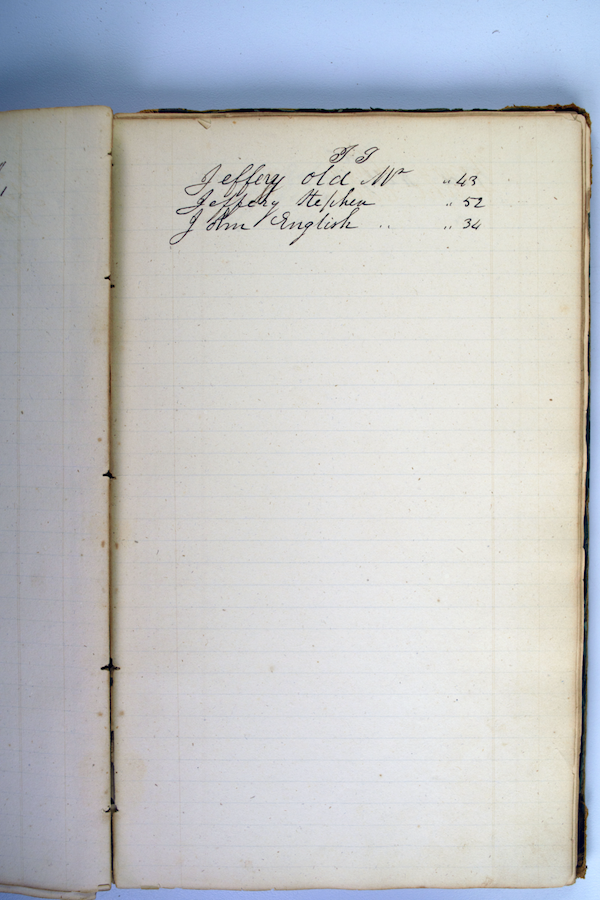 J J
Jeffery old Mr " 43
Jeffery Stephen " 52
John English " " 34